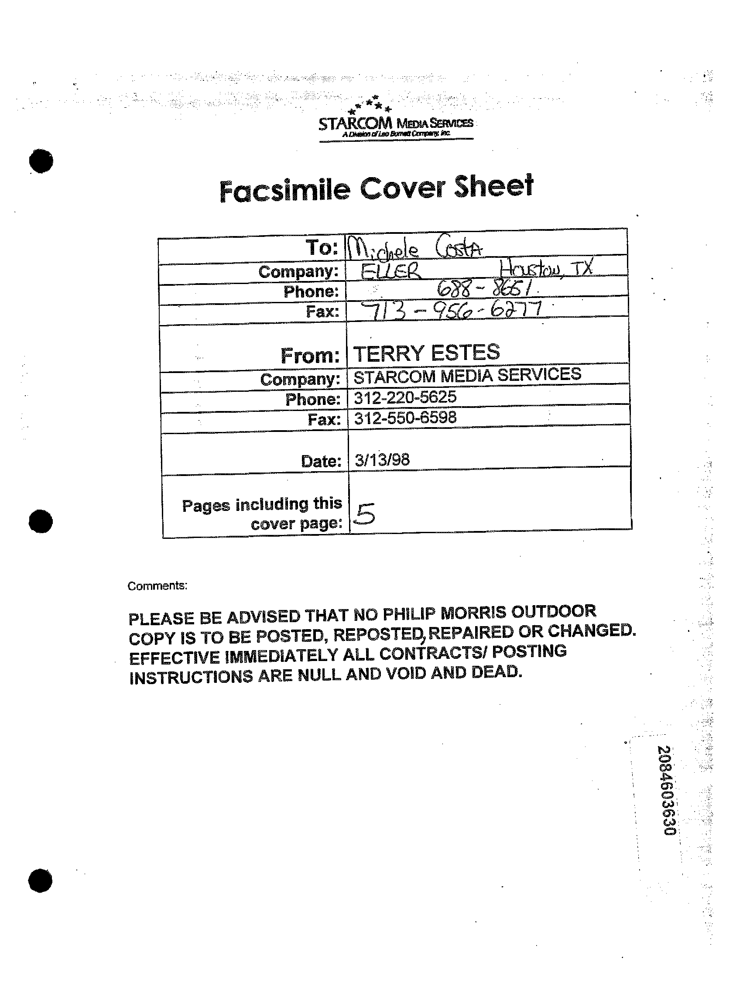 STARCOM MEDIA SERVICES
A Division of Leo Burnett Company, Inc.
Facsimile Cover Sheet
To: Michele Costa
Company: ELLER Houston, TX
Phone: 688-8651
Fax: 713-956-6277
From: TERRY ESTES
Company: STARCOM MEDIA SERVICES
Phone: 312-220-5625
Fax: 312-550-6598
Date: 3/13/98
Pages including this
cover page: 5
Comments:
PLEASE BE ADVISED THAT NO PHILIP MORRIS OUTDOOR
COPY IS TO BE POSTED, REPOSTED, REPAIRED OR CHANGED.
EFFECTIVE IMMEDIATELY ALL CONTRACTS/ POSTING
INSTRUCTIONS ARE NULL AND VOID AND DEAD.
2084603630